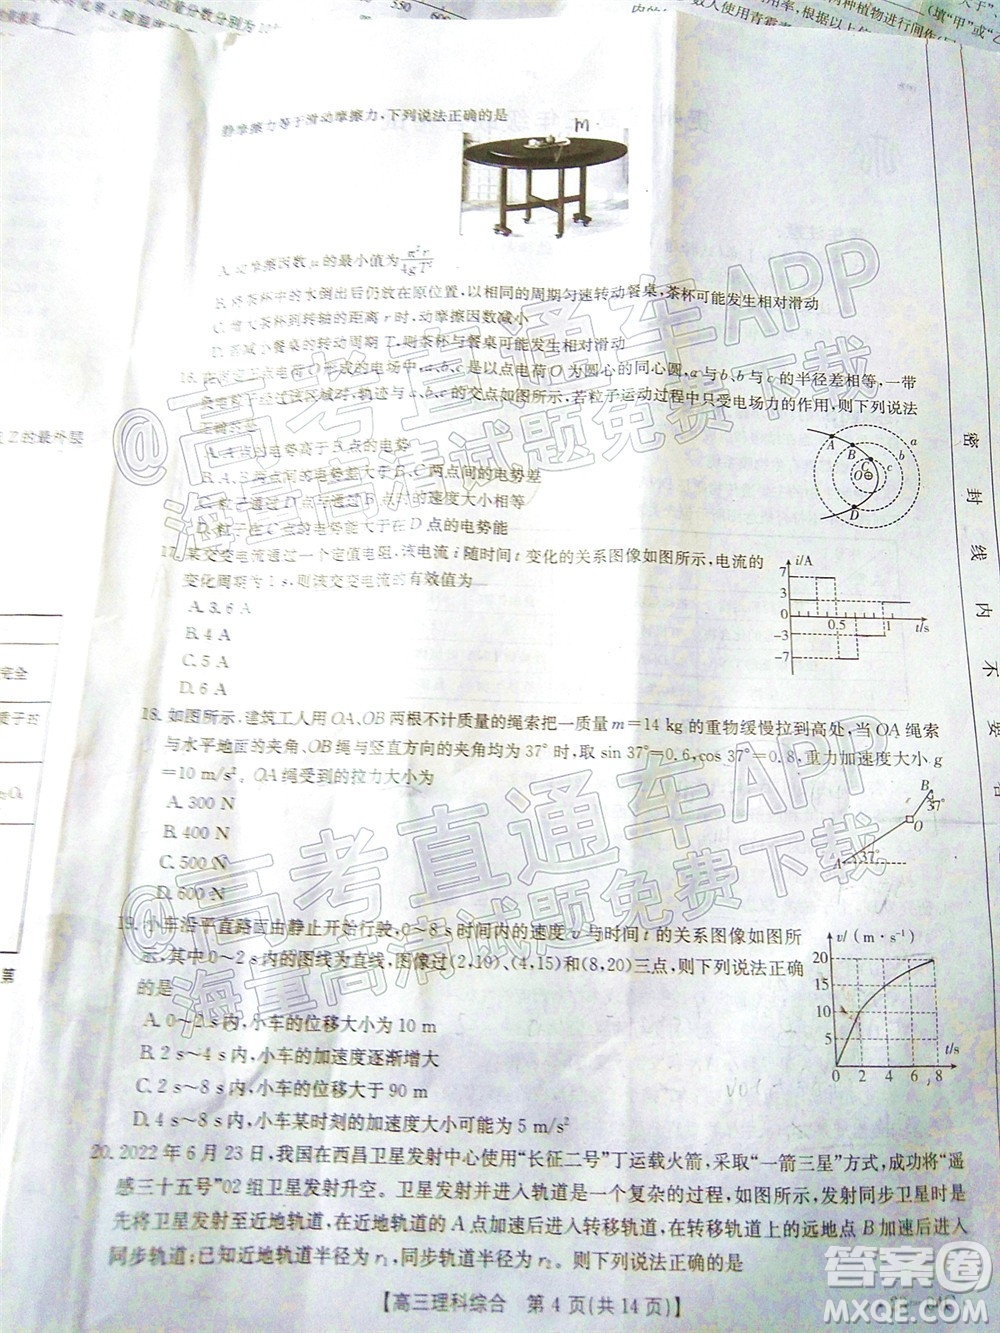 静摩擦力等于滑动摩擦力,下列说法正确的是
m
A. 动摩擦因数μ的最小值为π²r/4gT²
B. 将茶杯中的水倒出后仍放在原位置,以相同的周期匀速转动餐桌,茶杯可能发生相对滑动
C. 增大茶杯到转轴的距离r时,动摩擦因数减小
D. 若减小餐桌的转动周期T,则茶杯与餐桌可能发生相对滑动
16. 在固定点电荷O形成的电场中,a、b、c是以点电荷O为圆心的同心圆,a与b、b与c的半径差相等,一带
负电粒子经过该区域时,轨迹与a、b、c的交点如图所示,若粒子运动过程中只受电场力的作用,则下列说法
正确的是
A. A点的电势高于B点的电势
B. A、B两点间的电势差大于B、C两点间的电势差
C. 粒子通过B点与通过D点的速度大小相等
D. 粒子在C点的电势能大于在D点的电势能
17. 某交变电流通过一个定值电阻,该电流i随时间t变化的关系图像如图所示,电流的
变化周期为1 s,则该交变电流的有效值为
A. 3.6 A
B. 4 A
C. 5 A
D. 6 A
i/A
7
3
0.5
1
t/s
-3
-7
18. 如图所示,建筑工人用OA、OB两根不计质量的绳索把一质量m=14 kg的重物缓慢拉到高处,当OA绳索
与水平地面的夹角、OB绳与竖直方向的夹角均为37°时,取sin 37°=0.6,cos 37°=0.8,重力加速度大小g
=10 m/s²。OA绳受到的拉力大小为
A. 300 N
B. 400 N
C. 500 N
D. 600 N
B
37°
O
A
37°
19. 小车沿平直路面由静止开始行驶,0~8 s时间内的速度v与时间t的关系图像如图所
示,其中0~2 s内的图线为直线,图线经过(2,10)、(4,15)和(8,20)三点,下列说法正确
的是
A. 0~2 s内,小车的位移大小为10 m
B. 2 s~4 s内,小车的加速度逐渐增大
C. 2 s~8 s内,小车的位移大于90 m
D. 4 s~8 s内,小车某时刻的加速度大小可能为5 m/s²
v/(m·s⁻¹)
20
15
10
5
0 2 4 6 8
t/s
20. 2022年6月23日,我国在西昌卫星发射中心使用“长征二号”丁运载火箭,采取“一箭三星”方式,成功将“遥
感三十五号”02组卫星发射升空。卫星发射并进入轨道是一个复杂的过程,如图所示,发射同步卫星时是
先将卫星发射至近地轨道,在近地轨道的A点加速后进入转移轨道,在转移轨道上的远地点B加速后进入
同步轨道;已知近地轨道半径为r₁,同步轨道半径为r₂。则下列说法正确的是
【高三理科综合 第4页(共14页)】
密封线内不要
@高考直通车APP
海量高清试题免费下载
@高考直通车APP
海量高清试题免费下载
答案圈
MXQE.COM